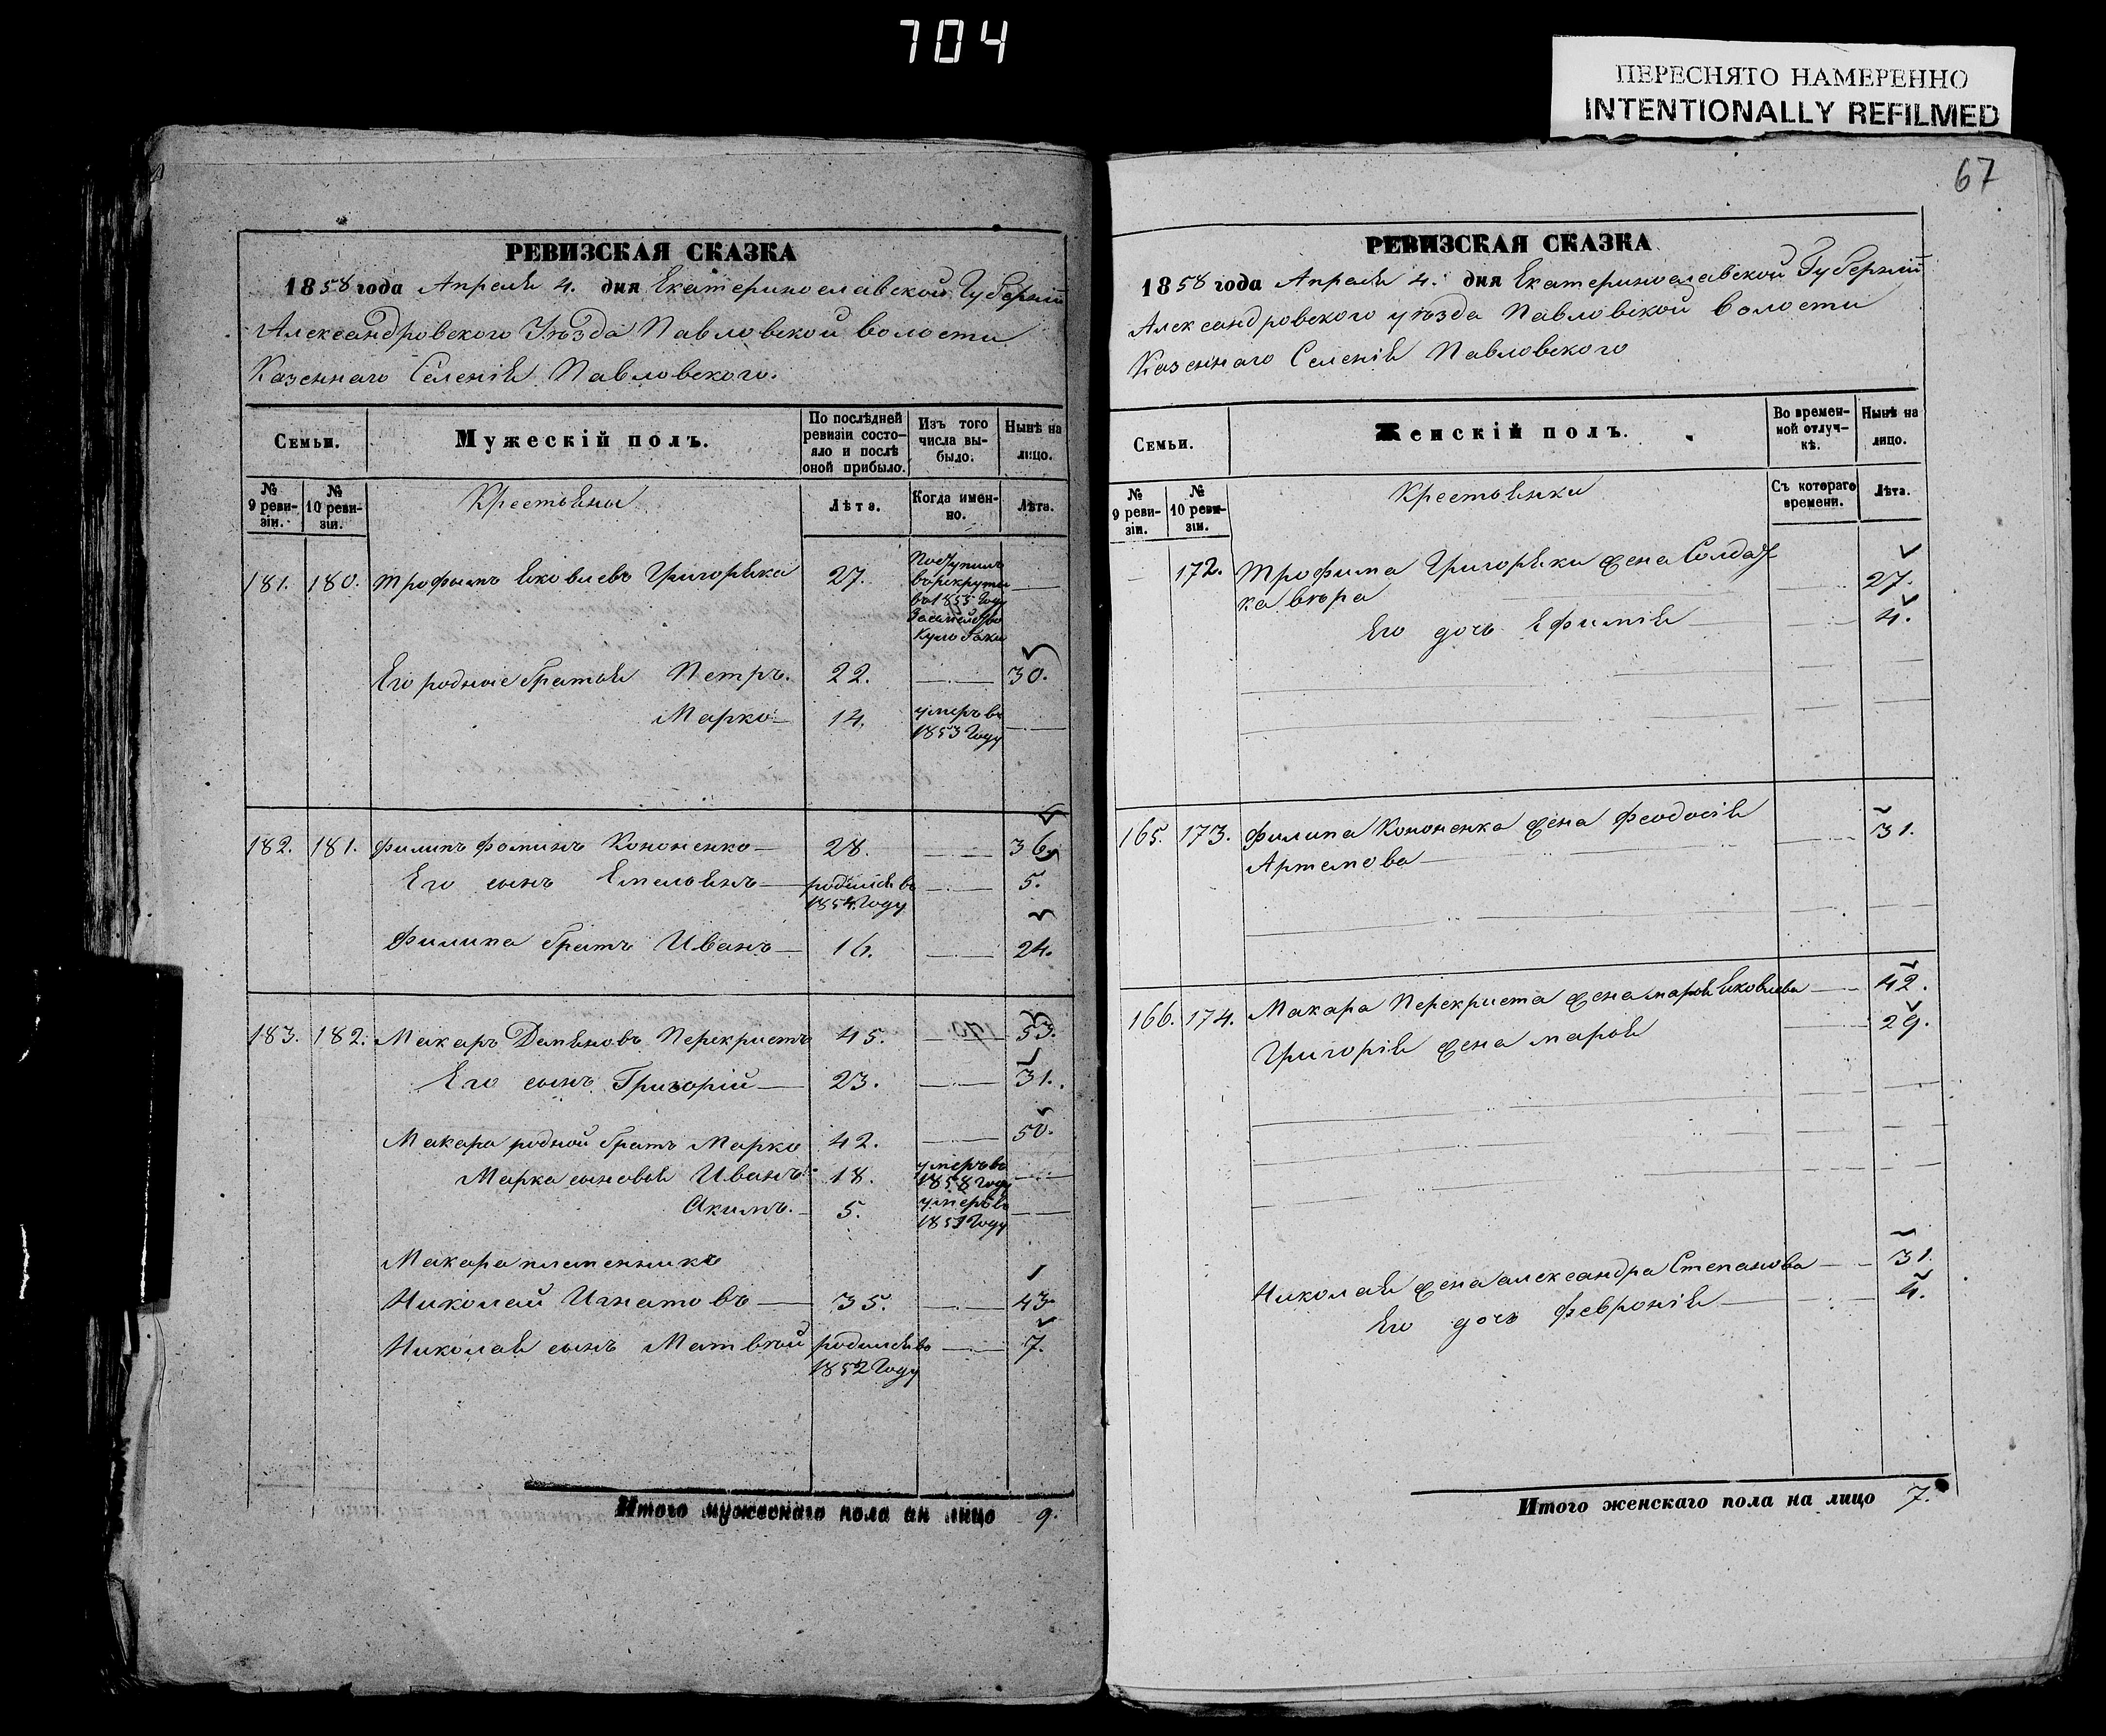 704
ПЕРЕСНЯТО НАМЕРЕННО
INTENTIONALLY REFILMED
67
РЕВИЗСКАЯ СКАЗКА
1858 года Апреля 4. дня Екатеринославской Губерніи
Александровского Уѣзда Павловской волости
Казеннаго Селенія Павловского.
Семьи.
Мужескій полъ.
По послѣдней ревизіи состояло и послѣ оной прибыло.
Изъ того числа выбыло.
Нынѣ на лицо.
№ 9 ревизіи.
№ 10 ревизіи.
Крестьяны
Лѣта.
Когда именно.
Лѣта.
181. 180. Трофымъ Яковлевъ Григоряка 27.
Поступилъ
в рекруты
во 1855 Году
Его родные братья Петръ. 22. 30.
Марко 14. умеръ въ
1853 Году
182. 181. Филипъ Фоминъ Кононенко 28. 36.
Его сынъ Емельянъ родился во 5.
1854 Году
Филипа братъ Иванъ 16. 24.
183. 182. Макаръ Демяновъ Перекристъ 45. 53.
Его сынъ Григорій 23. 31.
Макара родной братъ Марко 42. 50.
Марка сыновья Иванъ 18. умеръ въ
1858 Году
Акимъ. 5. умеръ въ
1851 Году
Макара племенникъ
Николай Игнатовъ 35. 43
Николая сынъ Матвѣй родился во 7.
1852 Году
Итого мужескаго пола на лицо 9.
РЕВИЗСКАЯ СКАЗКА
1858 года Апреля 4. дня Екатеринославской Губерніи
Александровского уѣзда Павловской волости
Казеннаго Селенія Павловского
Семьи.
Женскій полъ.
Во временной отлучкѣ.
Нынѣ на лицо.
№ 9 ревизіи.
№ 10 ревизіи.
Крестьянки
Съ котораго времени.
Лѣта.
172. Трофима Григоряки жена Солдат
ка вѣра 27.
Его дочь Ефимія 4.
165. 173. Филипа Кононенка жена Феодосія 31.
Артемова
166. 174. Макара Перекриста жена марья Яковлева 42.
Григорія жена марья 29.
Николая жена александра Степанова 31.
Его дочь Февронія 4.
Итого женскаго пола на лицо 7.